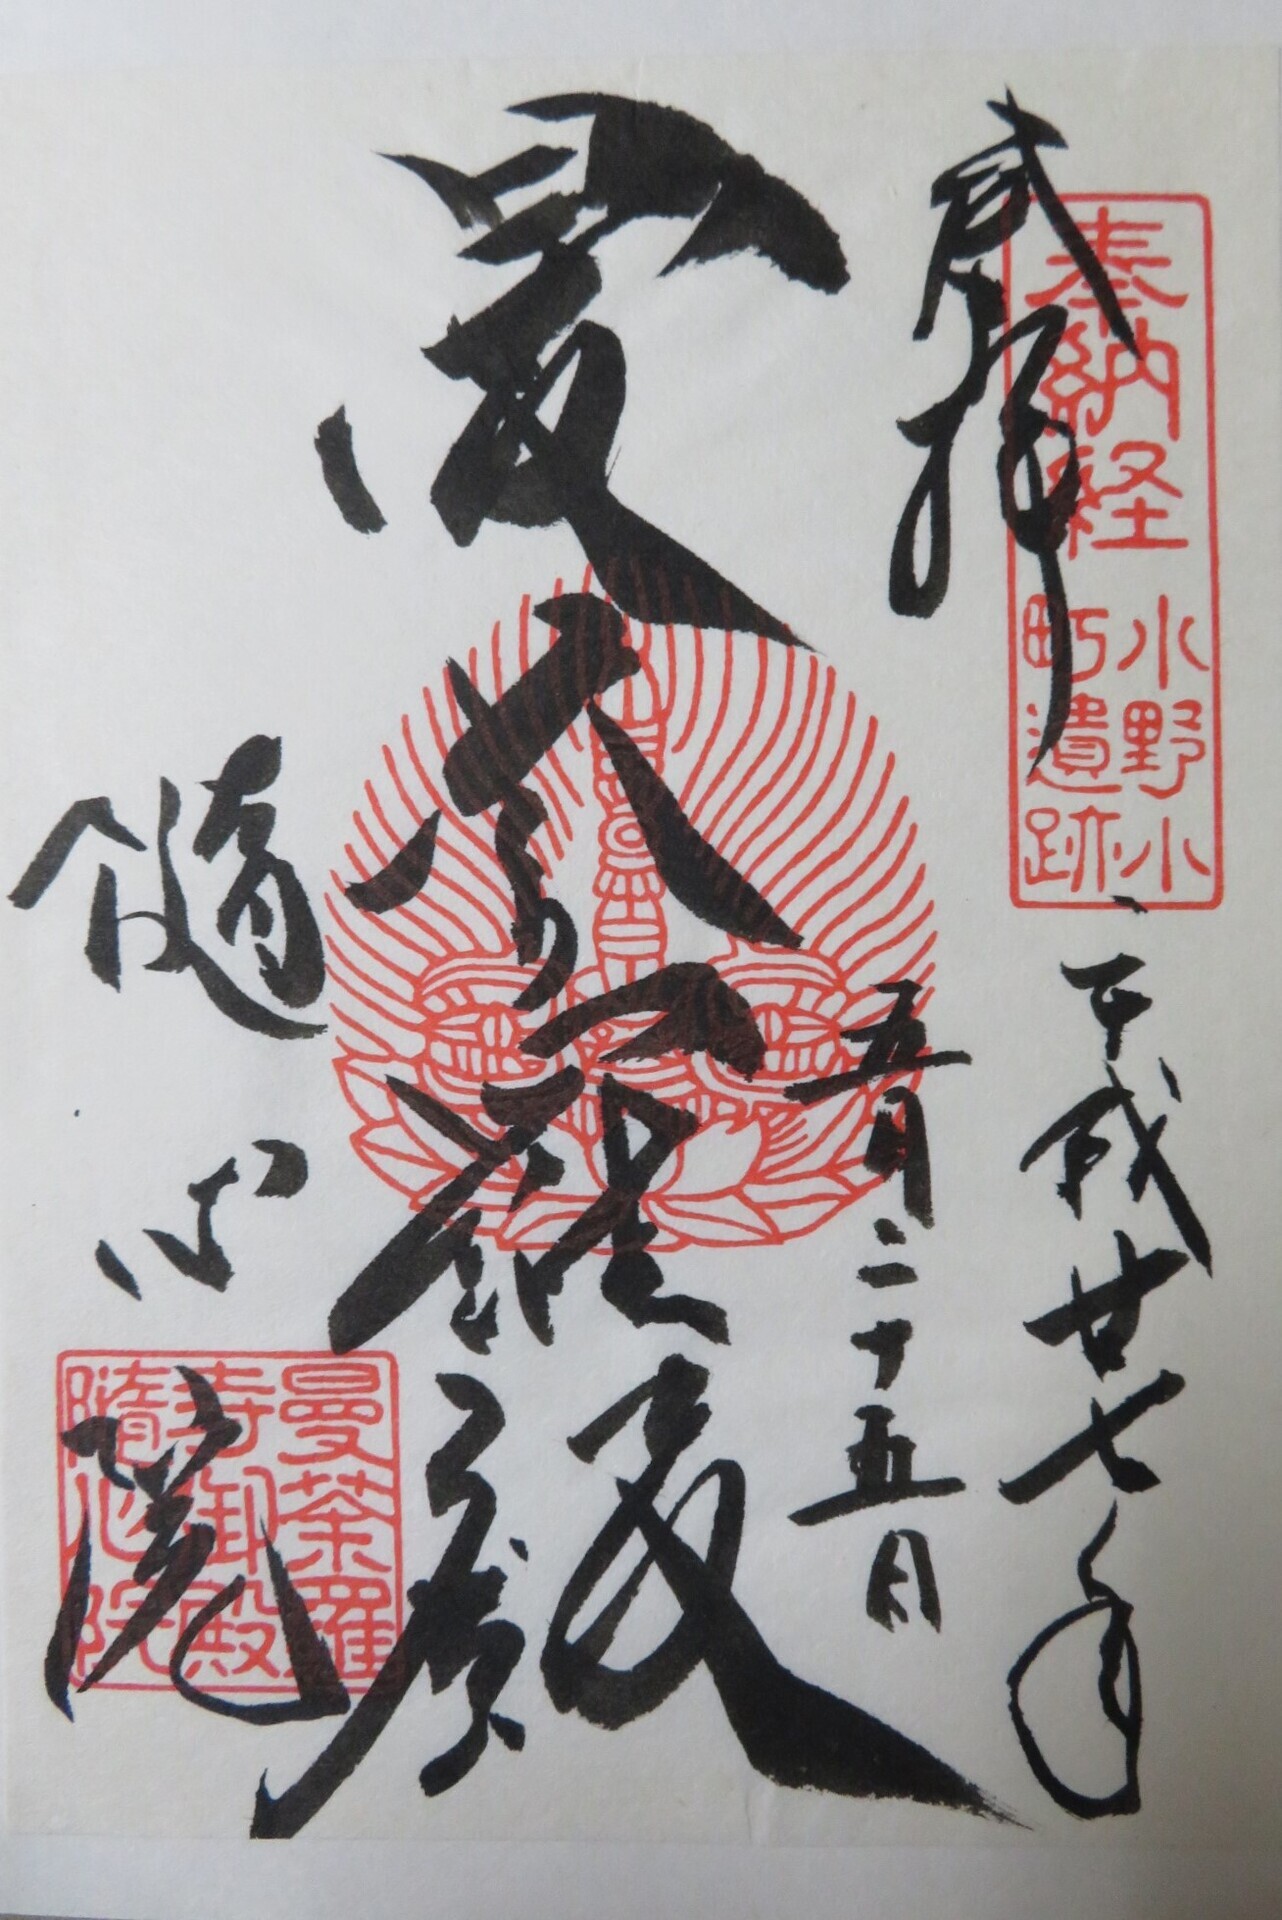 奉納経
小野小
町遺跡
拝
平成廿七年
五月二十五日
曼荼羅殿
隨心院
曼荼羅
寺御殿
隨心院